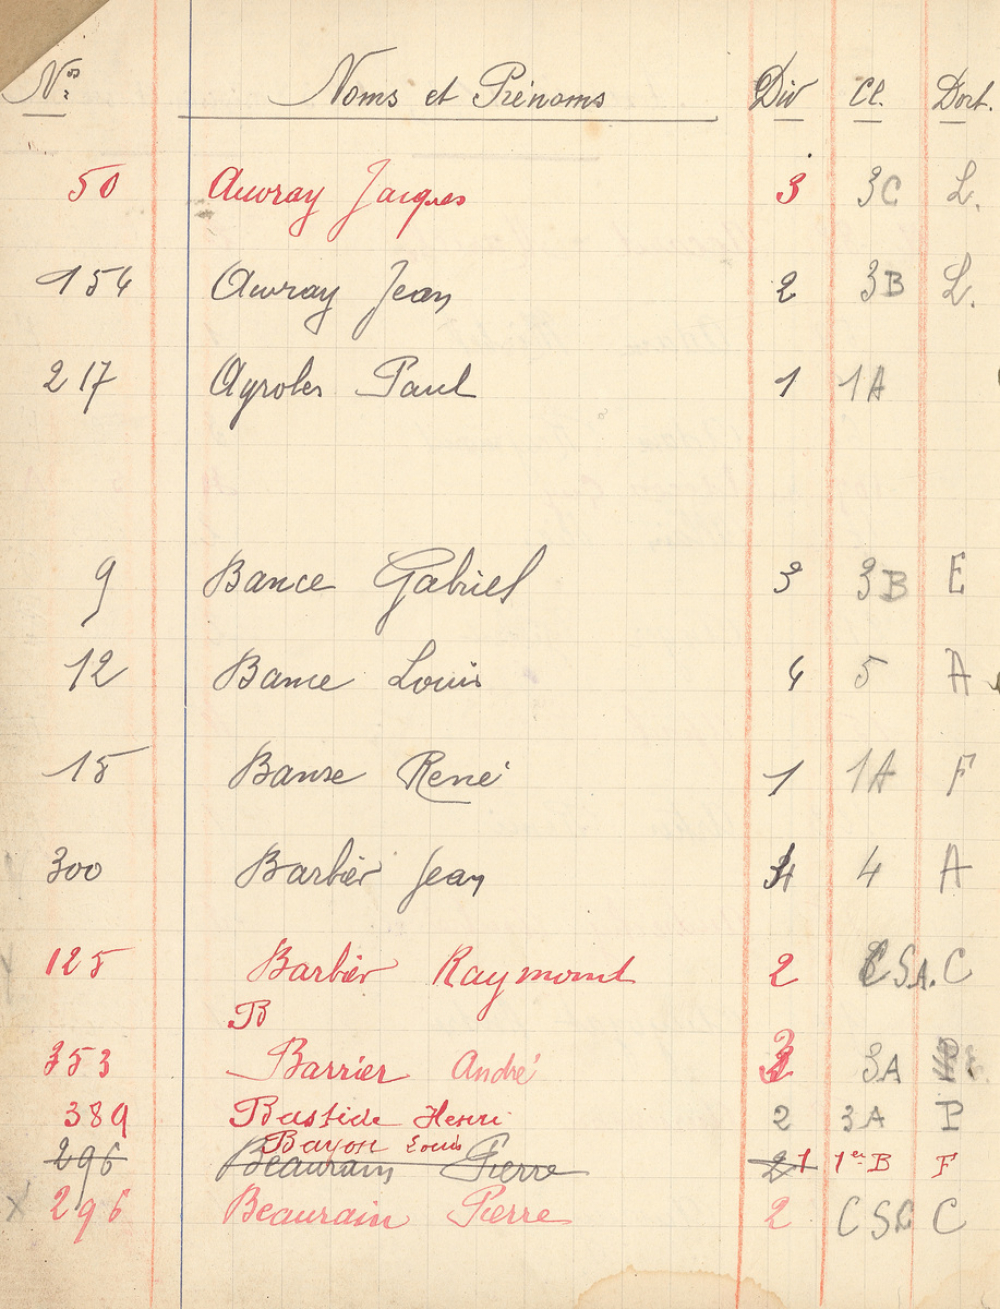 Nos Noms et Prénoms Div Cl. Dort.
50 Auvray Jacques 3 3C L.
154 Auvray Jean 2 3B L.
217 Ayroles Paul 1 1A
9 Bance Gabriel 3 3B E
12 Bance Louis 4 5 A
15 Banse René 1 1A F
300 Barbier Jean 4 4 A
125 Barbier Raymond 2 CSA. C
B
353 Barrier André 3 3A
389 Bastide Henri 2 3A P
Bayon Louis 1 1er B F
296 Beaurain Pierre 2
296 Beaurain Pierre 2 CSC C